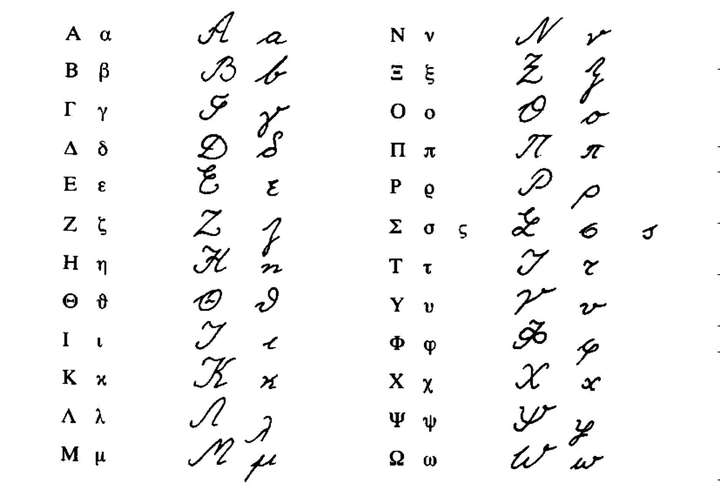 Α α Α α
Β β Β β
Γ γ Γ γ
Δ δ Δ δ
Ε ε Ε ε
Ζ ζ Ζ ζ
Η η Η η
Θ ϑ Θ ϑ
Ι ι Ι ι
Κ ϰ Κ ϰ
Λ λ Λ λ
Μ μ Μ μ
Ν ν Ν ν
Ξ ξ Ξ ξ
Ο ο Ο ο
Π π Π π
Ρ ϱ Ρ ρ
Σ σ ς Σ σ ς
Τ τ Τ τ
Υ υ Υ υ
Φ φ Φ φ
Χ χ Χ χ
Ψ ψ Ψ ψ
Ω ω Ω ω